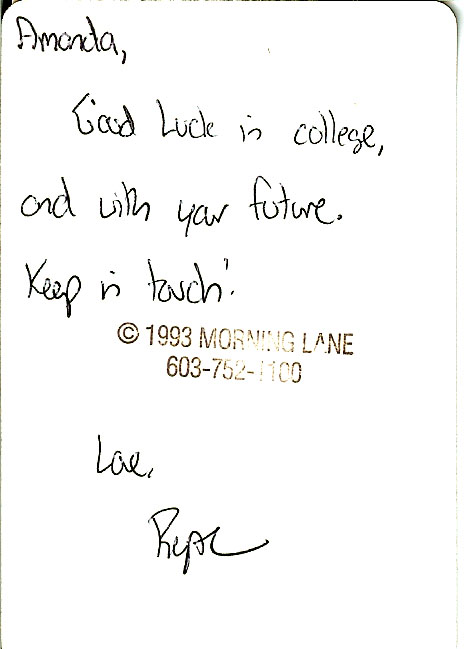 Amanda,
Good Luck in college,
and with your future.
Keep in touch!
© 1993 MORNING LANE
603-752-1100
Love,